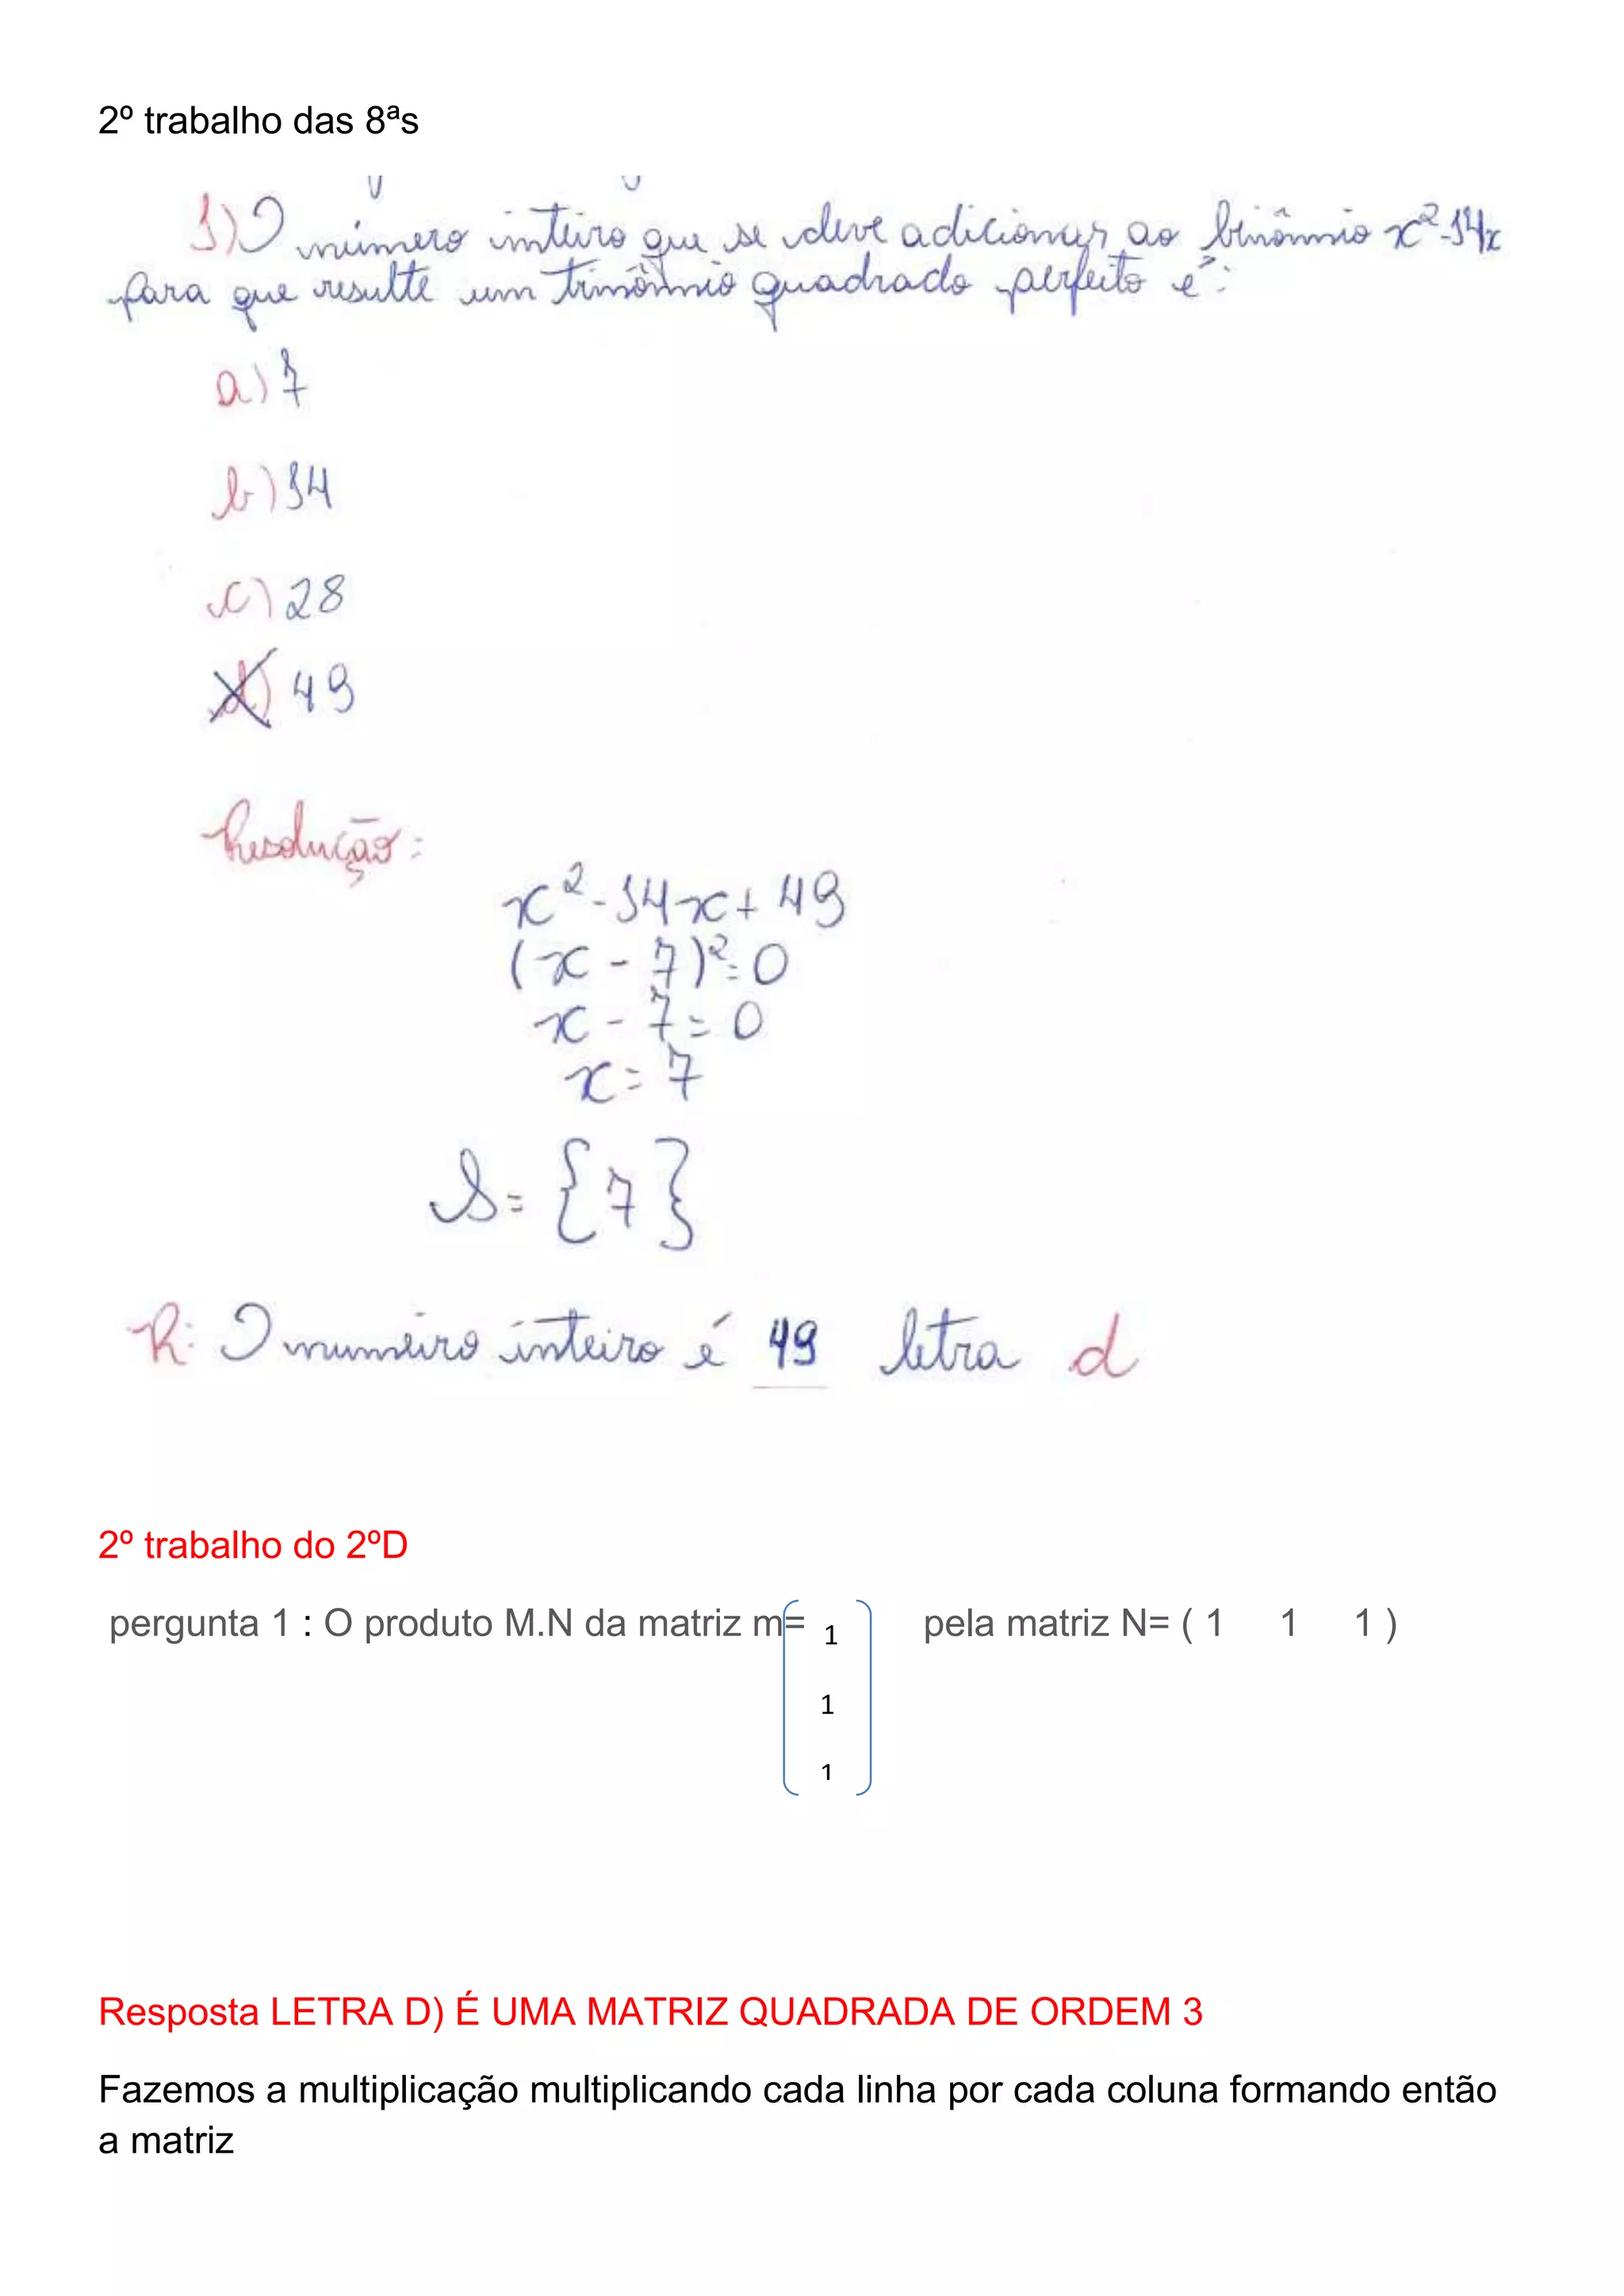 2º trabalho das 8ªs
1) O número inteiro que se deve adicionar ao binômio x²-14x
para que resulte um trinômio quadrado perfeito é:
a) 7
b) 14
c) 28
d) 49
Resolução:
x²-14x+49
(x-7)²=0
x-7=0
x=7
S={7}
R: O numeiro inteiro é 49 letra d
2º trabalho do 2ºD
pergunta 1 : O produto M.N da matriz m= 1 pela matriz N= ( 1 1 1 )
1
1
Resposta LETRA D) É UMA MATRIZ QUADRADA DE ORDEM 3
Fazemos a multiplicação multiplicando cada linha por cada coluna formando então
a matriz